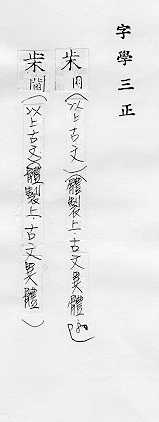 字學三正
(以上古文)(體製上·古文異體
閫(以上古文)(體製上·古文異體)